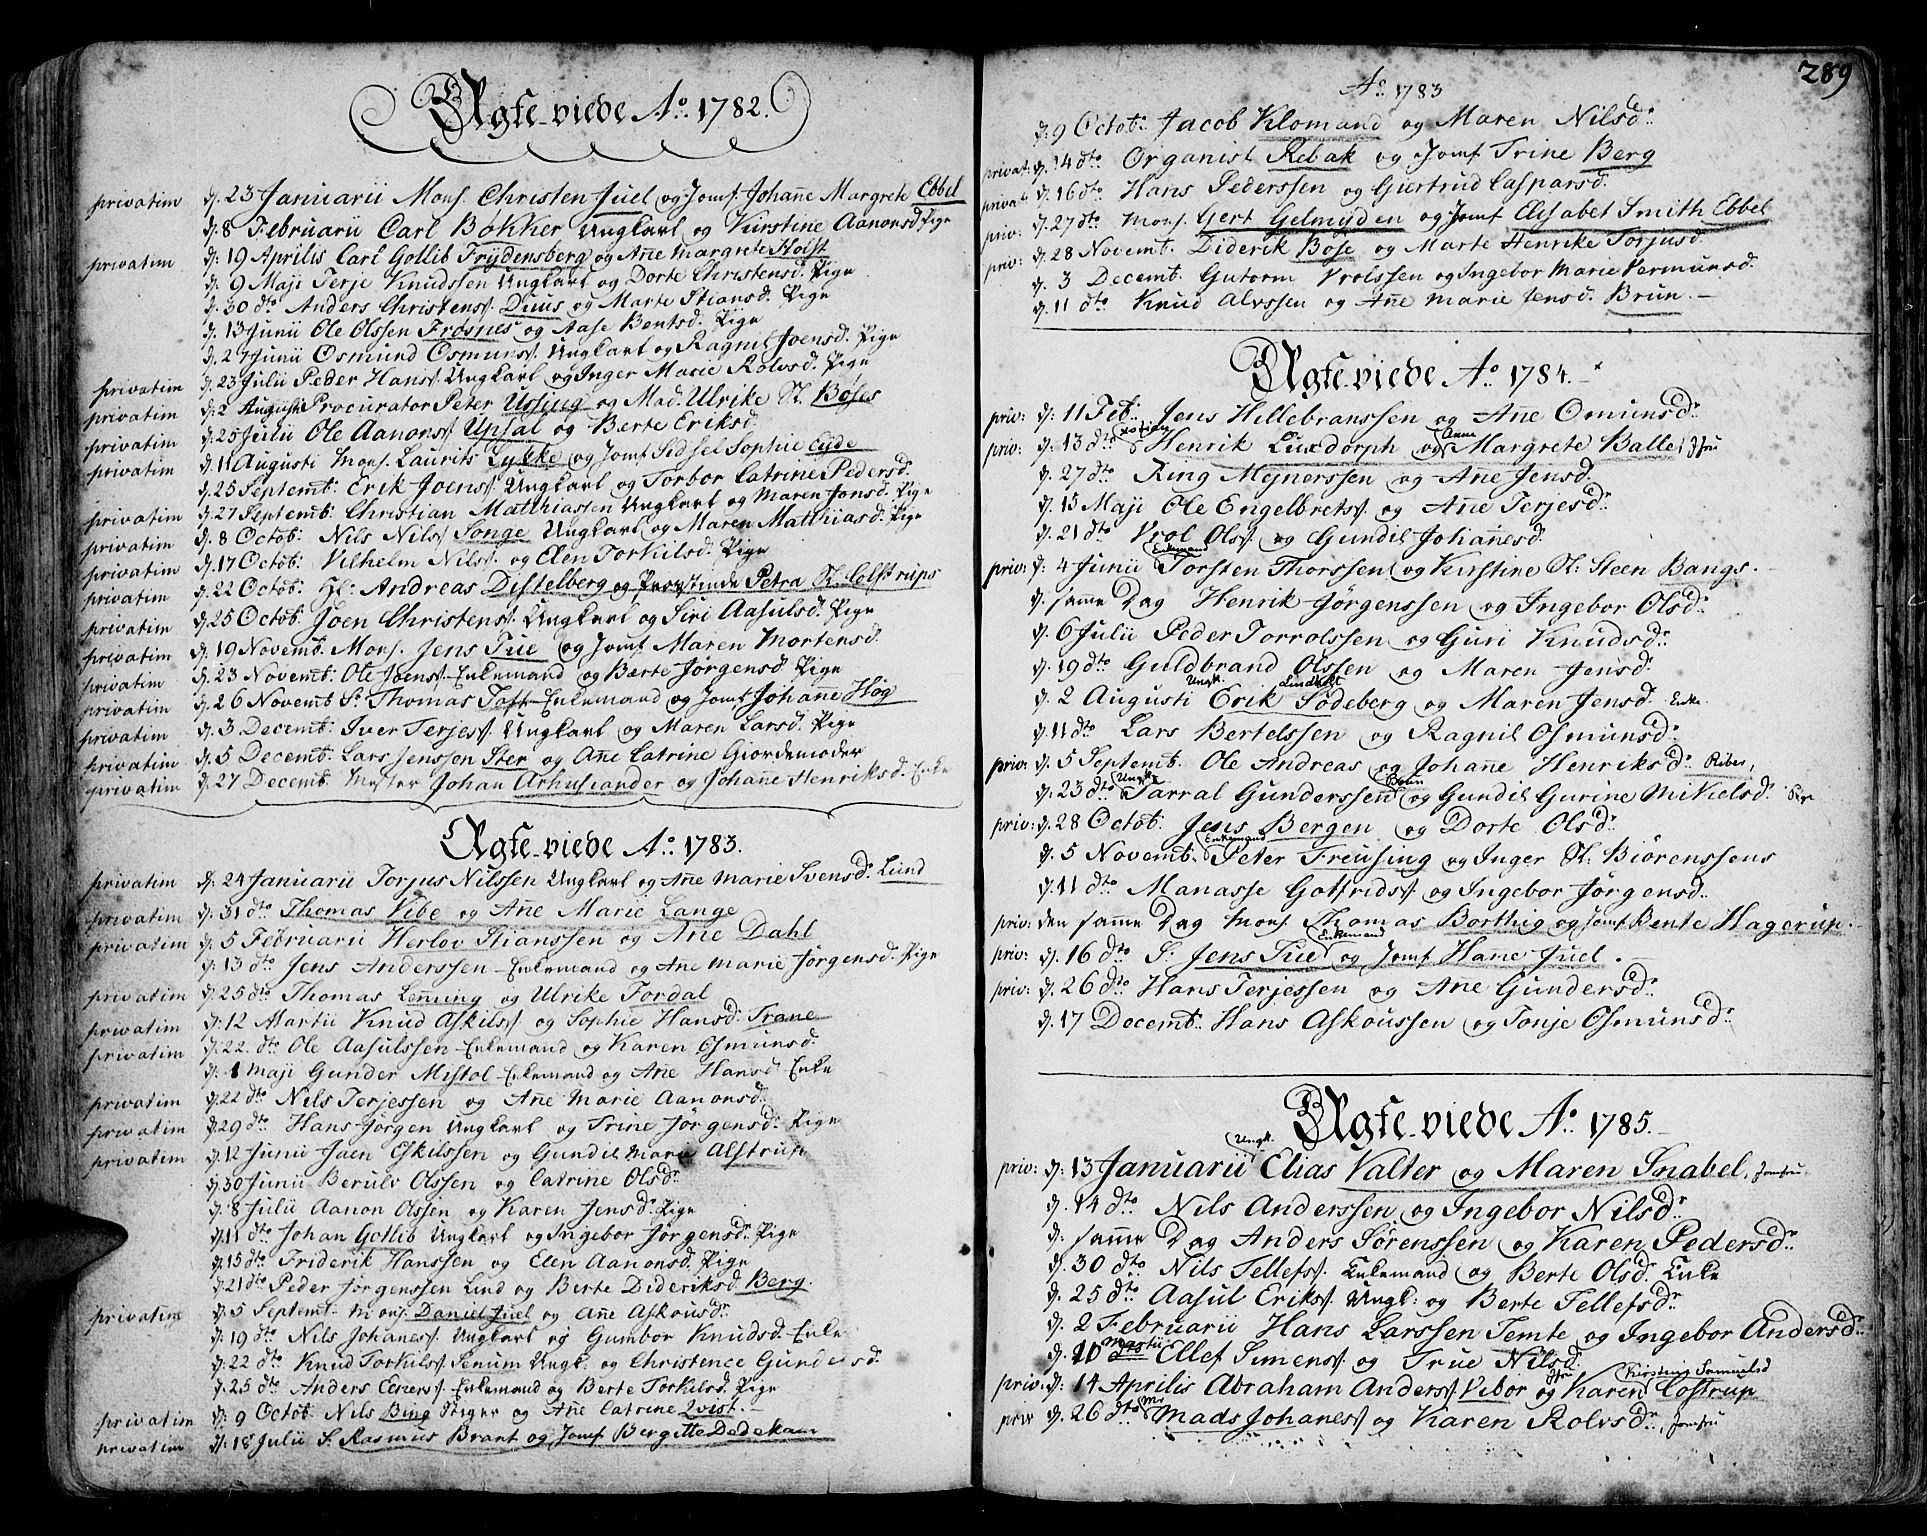 Ægte-viede Ao. 1782.
privatim d. 23 Januarii Mons. Christen Juel og Jomf. Johañe Margrete Ebbel
d. 8 Februarii Carl Bøkker Ungkarl og Kirstine Aanonsd. Pige
privatim d. 19 Aprilis Carl Gollib Frydensberg og Añe Margrete Holst
d. 9 Maji Terje Knudssen Ungkarl og Dorte Christensd. Pige
d. 30 dto Anders Christens. Duus og Marte Stiansd. Pige
d. 13 Junii Ole Olssen Frøsnes og Aase Bentsd. Pige
d. 27 Junii Osmund Osmuns. Ungkarl og Ragnil Joensd. Pige
privatim d. 23 Julii Peder Hans. Ungkarl og Inger Marie Rolvsd. Pige
privatim d. 2 Augusti Procurator Peter Ussing og Mad. Ulrike Sl. Boses
privatim d. 25 Julii Ole Aanons. Upsal og Berte Eriksd.
privatim d. 11 Augusti Mons. Laurits Lykke og Jomf. Sidsel Sophie Eyde
d. 25 Septemb. Erik Joens. Ungkarl og Torbor Catrine Pedersd.
privatim d. 27 Septemb. Christian Matthiassen Ungkarl og Maren Jonsd. Pige
privatim d. 8 Octob. Nils Nils. Songe Ungkarl og Maren Matthiasd. Pige
privatim d. 17 Octob. Vilhelm Nils. og Elen Torkilsd. Pige
privatim d. 22 Octob. Hr. Andreas Distelberg og Provstinde Petra Sl. Colstrups
privatim d. 25 Octob. Joen Christens. Ungkarl og Siri Aasulsd. Pige
privatim d. 19 Novemb. Mons. Jens Tue og Jomf. Maren Mortensd.
privatim d. 23 Novemb. Ole Joens. Enkemand og Bærte Jørgensd. Pige
privatim d. 26 Novemb. Sr. Thomas Toft Enkemand og Jomf. Johañe Høg
privatim d. 3 Decemb. Iver Terjes. Ungkarl og Maren Larsd. Pige
privatim d. 5 Decemb. Lars Jenssen Ster og Añe Catrine Giordemoder
privatim d. 27 Decemb. Mester Johan Arhusiander og Johañe Henriksd. Enke
Ægte-viede Ao. 1783.
privatim d. 24 Januarii Torjus Nilssen Ungkarl og Añe Marie Svensd. Lund
privatim d. 31 dto Thomas Vibe og Añe Marie Lange
privatim d. 5 Februarii Herlov Stianssen og Añe Dahl
d. 13 dto Jens Anderssen Enkemand og Añe Marie Jørgensd. Pige
privatim d. 25 dto Thomas Leñning og Ulrike Fordal
privatim d. 12 Martii Knud Askils. og Sophie Hansd. Trane
privatim d. 22 dto Ole Aasulssen Enkemand og Karen Osmunsd.
d. 1 Maji Gunder Mistol Enkemand og Añe Hansd. Enke
privatim d. 22 dto Nils Terjessen og Añe Marie Aanonsd.
privatim d. 29 dto Hans Jørgen Ungkarl og Trine Jørgensd. Pige
privatim d. 12 Junii Joen Eskilssen og Gundil Marie Alstrup
d. 30 Junii Berulv Olssen og Catrine Olsd.
d. 8 Julii Aanon Olssen og Karen Jensd. Pige
d. 11 dto Johan Gotlib Ungkarl og Ingebor Jørgensd. Pige
d. 15 dto Friderik Hanssen og Elen Aanonsd. Pige
d. 21 dto Peder Jørgenssen Lind og Berte Dideriksd. Berg.
privatim d. 5 Septemb. Mons. Daniel Juel og Añe Askousdr.
d. 19 dto Nils Johanes. Ungkarl og Gumbor Knudsd. Enke
d. 22 dto Knud Torkils. Senum Ungk. og Christence Gundersd.
d. 25 dto Anders Eeners. Enkemand og Berte Torkilsd. Pige
privatim d. 9 Octob. Nils Bing Stiger og Añe Catrine Qvist.
privatim d. 18 Julii S. Rasmus Brant og Jomf. Bergitte Dedekam
289
Ao. 1783
d. 9 Octob. Jacob Klomand og Maren Nilsd.
privat: d. 14 dto Organist Rebak og Jomf. Trine Berg
privat: d. 16 dto Hans Pederssen og Giertrud Caspersd.
priv: d. 27 dto Mons. Gert Gelmyden og Jomf. Elisabet Smith Ebbel
priv: d. 28 Novemb. Diderik Bose og Marte Henrike Torjusd.
d. 3 Decemb. Gutorm Vrolssen og Ingebor Marie Vermunsd.
d. 11 dto Knud Alvssen og Añe Marie Jensd. Brun.
Ægte-viede Ao. 1784.
priv: d. 11 Feb. Jens Hillebranssen og Añe Osmunsdr.
priv: d. 13 dto Henrik Luxdorph og Anna Margrete Balle, Jfru
d. 27 dto Ring Mejnerssen og Añe Jensd.
d. 15 Maji Ole Engelbrets. og Añe Terjesdr.
d. 21 dto Vrol Ols. og Gundil Johañesd.
priv: d. 4 Junii Enkemand Torsten Thorssen og Kirstine Sl. Steen Bangs.
d. samme Dag Henrik Jørgenssen og Ingebor Olsdr.
d. 6 Julii Peder Torrolssen og Guri Knudsdr.
d. 19 dto Guldbrand Olssen og Maren Jensdr.
d. 2 Augusti Ungk. Erik Lindholt Södeberg og Maren Jensd. Enke.
d. 11 dto Lars Bertelssen og Ragnil Osmunsdr.
priv: d. 5 Septemb. Ole Andreas og Johañe Henriksdr. Riber,
d. 23 dto Ungk. Tarral Gunderssen Brun og Gundil Gurine Mikkelsd. Pige
priv: d. 28 Octob. Jens Bergen og Dorte Olsdr.
d. 5 Novemb. Enkemand Peter Freusing og Inger Sl. Biörenssens
d. 11 dto Manasse Gotfrids. og Ingebor Jørgensd.
priv: den samme Dag Mons. Thomas Borthig og Jomf. Bente Hagerup.
priv: d. 16 dto S. Jens Tue Enkemand og Jomf. Hane Juel.
priv: d. 26 dto Hans Terjessen og Añe Gundersdr.
d. 17 Decemb. Hans Askoussen og Tonje Osmunsdr.
Ægte-viede Ao. 1785.
priv: d. 13 Januarii Ungk. Elias Valter og Maren Snabel, Jomfru
d. 14 dto Nils Anderssen og Ingebor Nilsdr.
d. samme Dag Anders Sørenssen og Karen Pedersdr.
d. 30 dto Nils Tellefs. Enkemand og Berte Olsd. Enke
d. 25 dto Aasul Eriks. Ungk. og Berte Tellefsdr.
d. 2 Februarii Hans Larssen Temte og Ingebor Andersdr.
d. 10 Martii Ellef Simens. og True Nilsd.
priv. d. 14 Aprilis Abraham Anders. Vibor og Jfru Karen Kirstine Samuelsd Costrup
priv d. 26 dto Mr. Mads Johanes. og Karen Rolvsdr., Jomfru